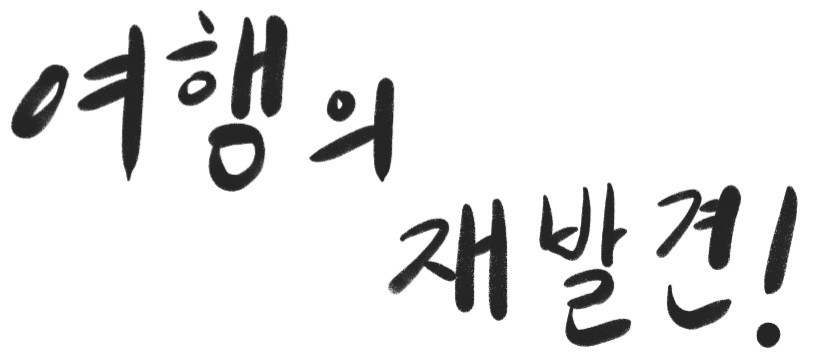 여행의
재발견!